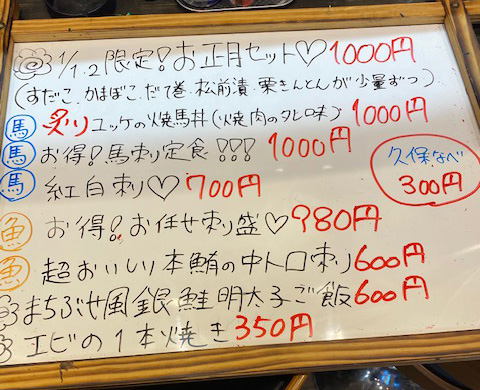 1/1.2限定!お正月セット♡1000円
(すだこ.かまぼこ.だて巻.松前漬.栗きんとんが少量ずつ)
馬 炙りユッケの焼馬丼(焼肉のタレ味)1000円
馬 お得!馬刺り定食!!! 1000円
馬 紅白刺り♡700円
久保なべ
300円
魚 お得!お任せ刺り盛♡980円
魚 超おいしい本鮪の中トロ刺り600円
まちぶせ風銀鮭明太子ご飯600円
エビの1本焼き350円